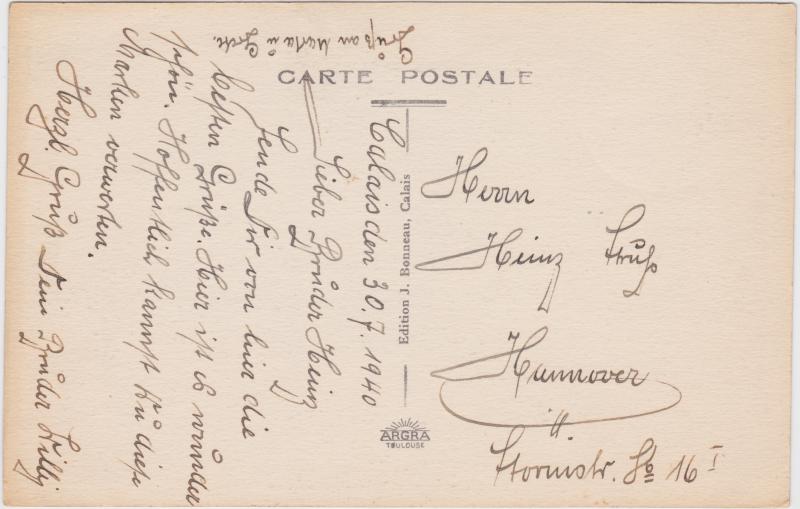 CARTE POSTALE
Calais den 30.7.1940
Lieber Bruder Heinz
Sende Dir von hier die
besten Grüße. Hier ist es wunder
schön. Hoffentlich kannst Du diese
Marken verwerten.
Herzl. Gruß Dein Bruder Willy
Gruß an Marta u
Edition J. Bonneau, Calais
ARGRA
TOULOUSE
Herrn
Heinz
Hannover
16 I